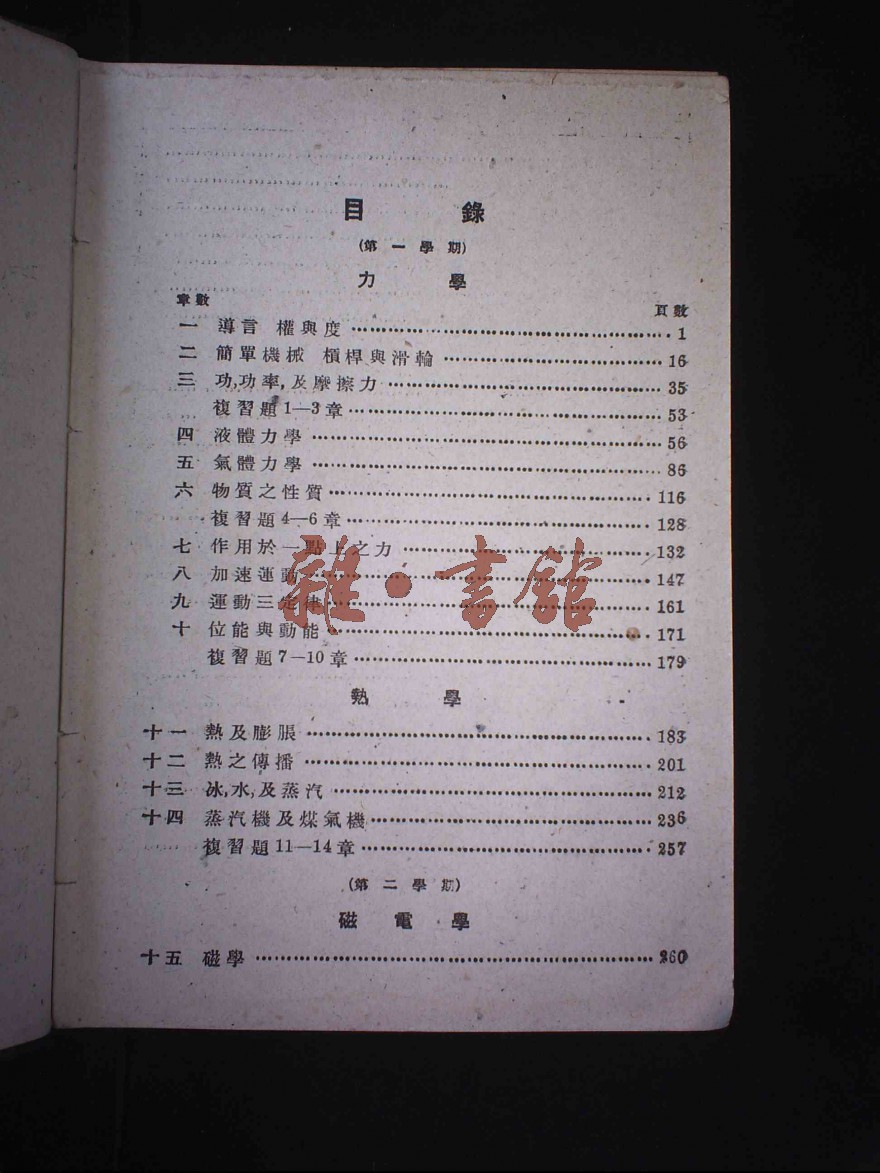 目錄
(第一學期)
力學
章數 頁數
一 導言 權與度 1
二 簡單機械 槓桿與滑輪 16
三 功,功率,及摩擦力 35
複習題1—3章 53
四 液體力學 56
五 氣體力學 86
六 物質之性質 116
複習題4—6章 128
七 作用於一點上之力 132
八 加速運動 147
九 運動三定律 161
十 位能與動能 171
複習題7—10章 179
雜·書館
熱學
十一 熱及膨脹 183
十二 熱之傳播 201
十三 冰,水,及蒸汽 212
十四 蒸汽機及煤氣機 236
複習題11—14章 257
(第二學期)
磁電學
十五 磁學 260